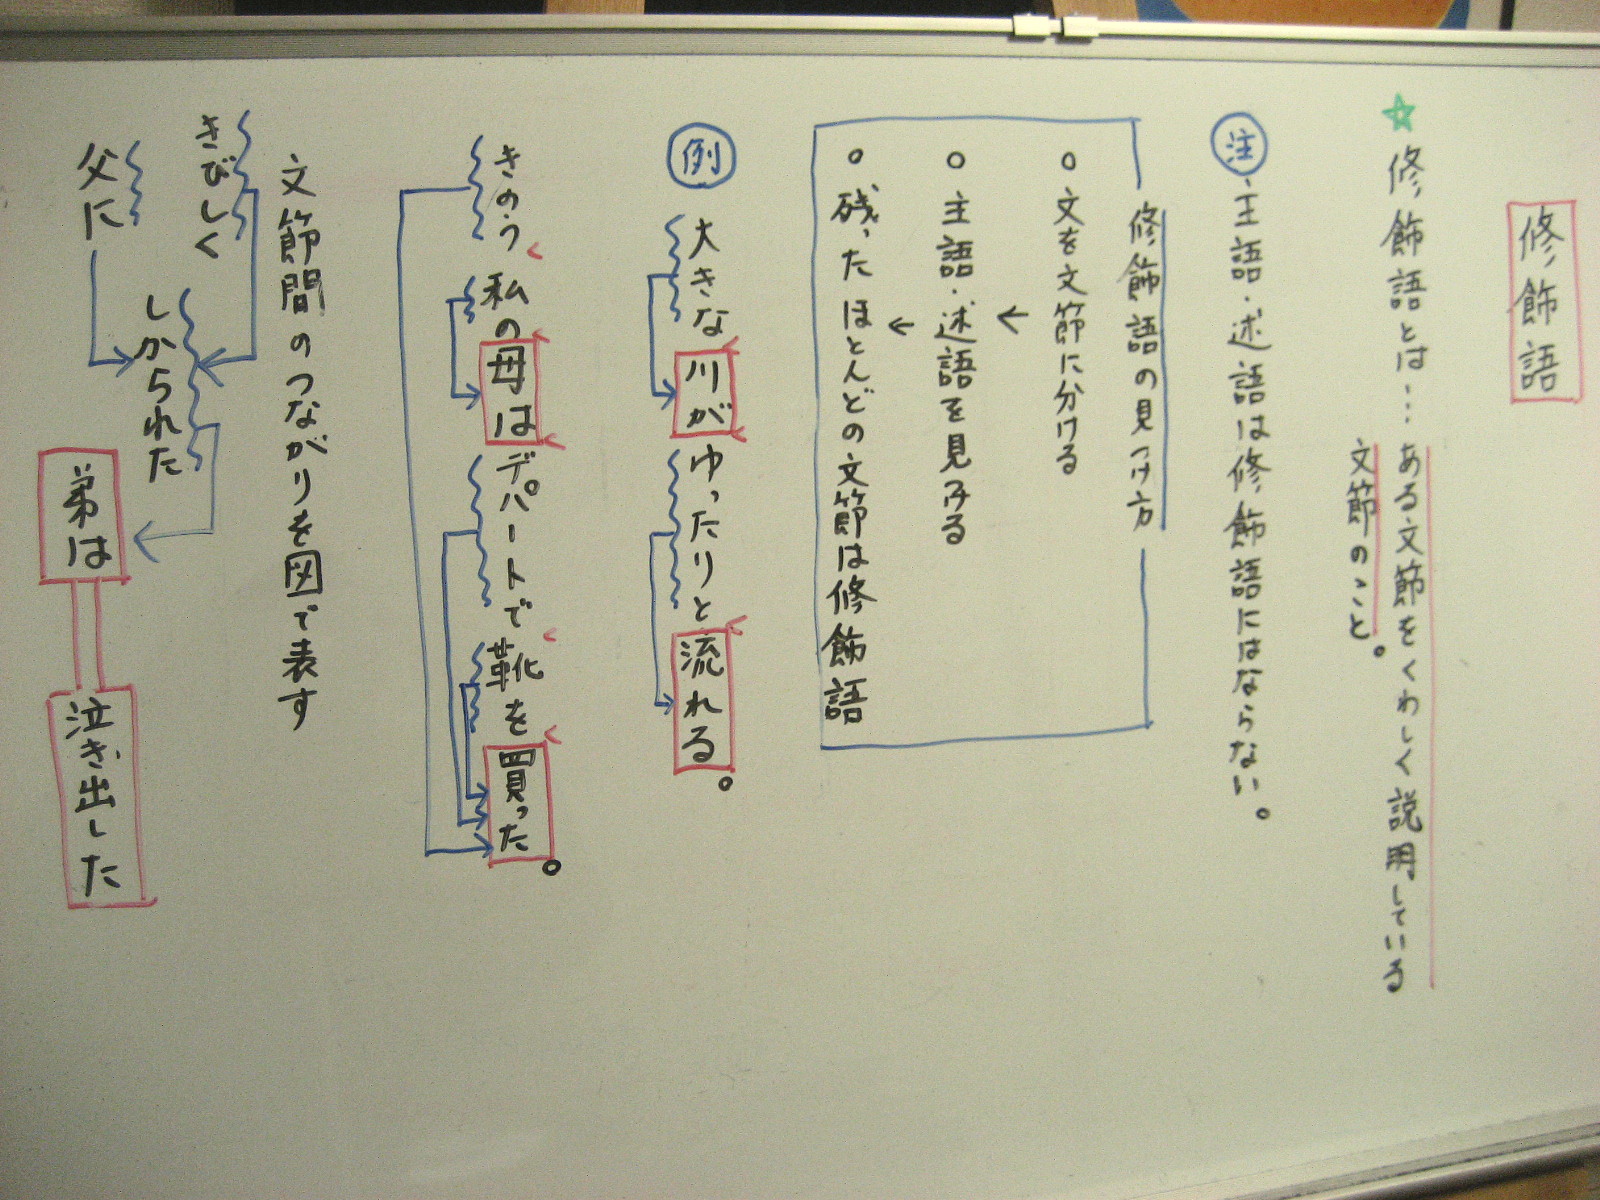 修飾語
☆修飾語とは…ある文節をくわしく説明している
文節のこと。
注 主語・述語は修飾語にはならない。
修飾語の見つけ方
○文を文節に分ける
↓
○主語・述語を見つける
↓
○残ったほとんどの文節は修飾語
例 大きな川がゆったりと流れる。
きのう私の母はデパートで靴を買った。
文節間のつながりを図で表す
きびしく
しかられた
父に
弟は
泣き出した